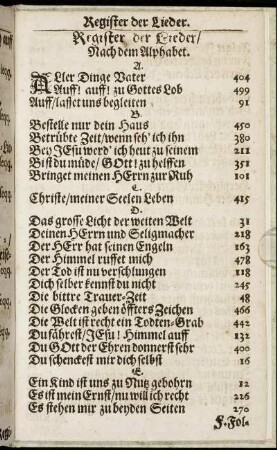 Register der Lieder.
Register der Lieder/
Nach dem Alphabet.
A.
Aller Dinge Vater 404
Auff! auff! zu Gottes Lob 499
Auff/lasset uns begleiten 91
B.
Bestelle nur dein Haus 450
Betrübte Zeit/wenn seh' ich ihn 380
Bey JEsu werd' ich heut zu seinem 211
Bist du müde/ GOtt! zu helffen 351
Bringet meinen HErrn zur Ruh 101
C.
Christe/meiner Seelen Leben 415
D.
Das grosse Licht der weiten Welt 31
Deinen HErrn und Seligmacher 218
Der HErr hat seinen Engeln 163
Der Himmel ruffet mich 478
Der Tod ist nu verschlungen 118
Dich selber kennst du nicht 245
Die bittre Trauer-Zeit 48
Die Glocken geben öffters Zeichen 466
Die Welt ist recht ein Todten-Grab 442
Du fährest/JEsu! Himmel auff 132
Du GOtt der Ehren donnerst sehr 400
Du schenckest mir dich selbst 16
E.
Ein Kind ist uns zu Nutz gebohrn 12
Es ist mein Ernst/nu will ich recht 226
Es stehen mir zu beyden Seiten 270
F. Fol.